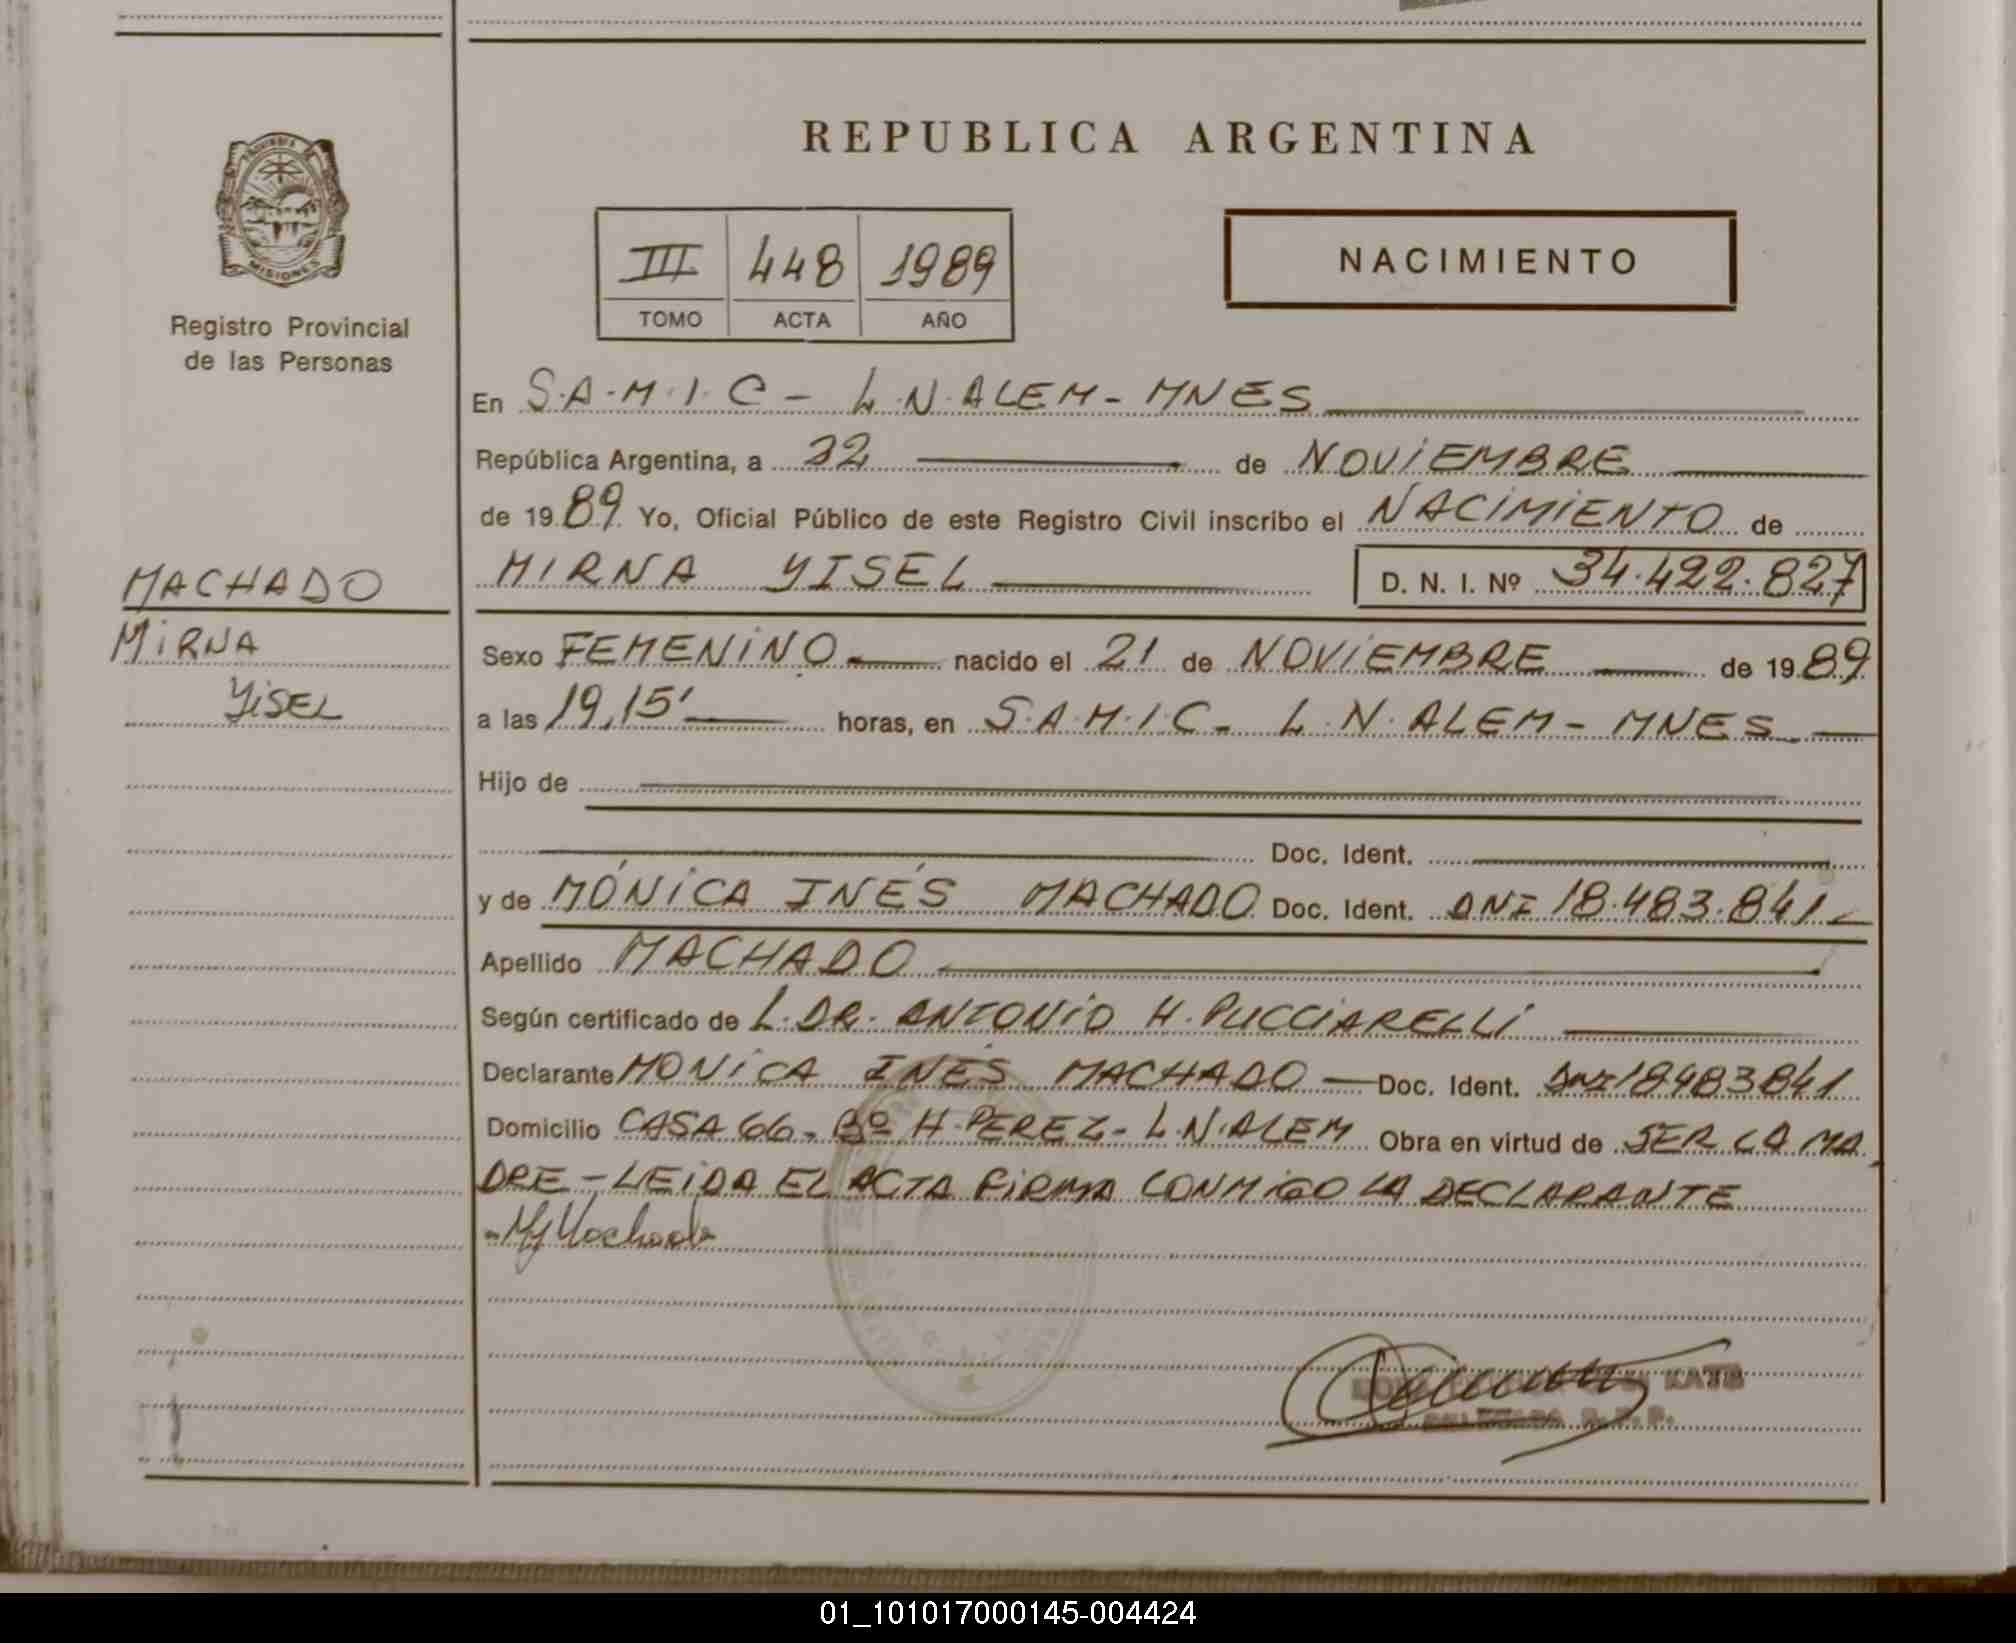 REPUBLICA ARGENTINA
MISIONES
Registro Provincial
de las Personas
III 448 1989
TOMO ACTA AÑO
NACIMIENTO
En S.A.M.I.C - L.N.ALEM - MNES
República Argentina, a 22 de NOVIEMBRE
de 1989 Yo, Oficial Público de este Registro Civil inscribo el NACIMIENTO de
MIRNA YISEL D. N. I. Nº 34.422.827
MACHADO
MIRNA
YISEL
Sexo FEMENINO nacido el 21 de NOVIEMBRE de 1989
a las 19,15' horas, en S.A.M.I.C - L.N.ALEM - MNES
Hijo de
Doc. Ident.
y de MÓNICA INÉS MACHADO Doc. Ident. DNI 18.483.841
Apellido MACHADO
Según certificado de L.DR. ANTONIO H. PUCCIARELLI
Declarante MONICA INÉS MACHADO Doc. Ident. DNI 18483841
Domicilio CASA 66 - Bº H.PEREZ - L.N.ALEM Obra en virtud de SER LA MA
DRE - LEIDA EL ACTA FIRMA CONMIGO LA DECLARANTE
Machado
KATS
R.P.P.
01_101017000145-004424